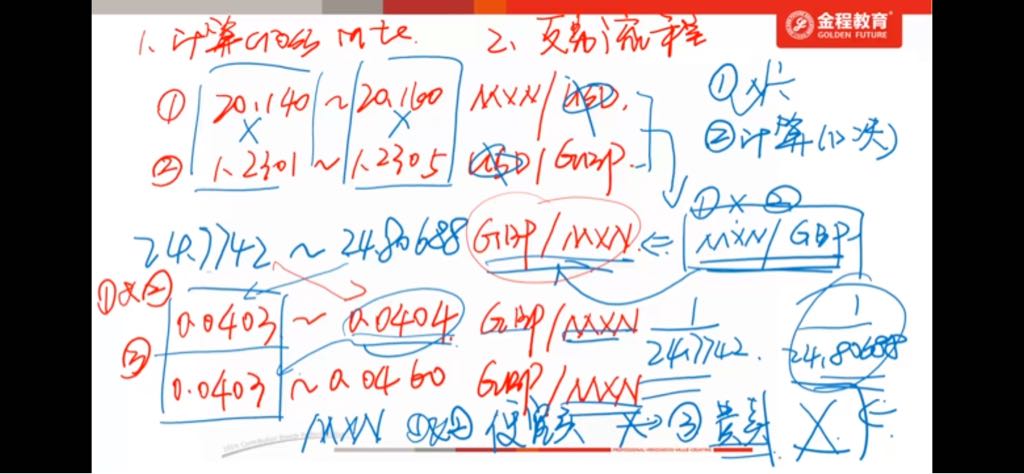 金程教育
GOLDEN FUTURE
1、计算cross rate 2、交易流程
① 20.140 ~ 20.160 MXN/USD.
× ×
② 1.2301 ~ 1.2305 USD/GBP.
①
②计算(12决)
①×②
24.7742 ~ 24.80688 GBP/MXN ⇐ MXN/GBP
①×② 0.0403 ~ 0.0404 GBP/MXN 1/24.7742. 1/24.80688
③ 0.0403 ~ 0.0460 GBP/MXN
MXN ①×② 便宜买 →③ 贵卖
PROFESSIONAL·INNOVATION·VALUE CREATING